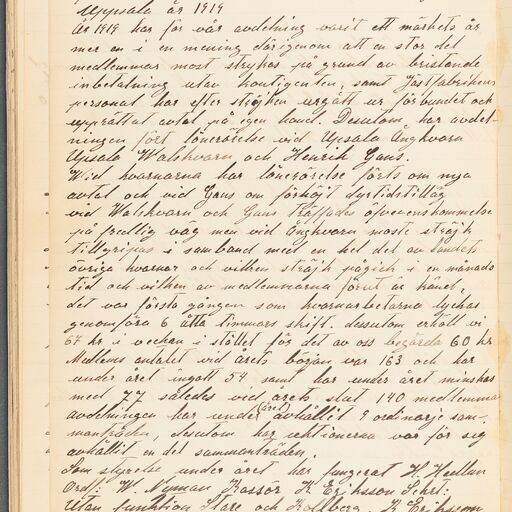 Uppsala år 1919
År 1919 har för vår avdelning varit ett märkets år
mer än i en mening därigenom att en stor del
medlemmar most strykas på grund av bristande
inbetalning utav kontigenten, samt Jästfabrikens
personal har efter strejken utgått ur förbundet och
upprättat avtal på egen hand. Desutom har avdel-
ningen fört lönerörelse vid Upsala Ångkvarn
Upsala Walskvarn och Henrik Gans.
Wid kvarnarna har lönerörelse förts om nya
avtal och vid Gans om förhöjt dyrtidstillåg
vid Walskvarn och Gans träffades öfverenskommelse
på fredlig väg men vid Ångkvarn moste strejk
tillgripas i samband med en hel del av landets
övriga kvarnar och vilken strejk pågick i en månads
tid och vilken av medlemmarna förut är känd,
det var första gången som kvarnarbetarna lyckas
genomföra 6 åtta timmars skift. desutom erhöll vi
67 kr i veckan i stället för det av oss begärda 60 kr
Medlems antalet vid årets början var 163 och har
under året ingått 54 samt har under året minskas
med 77 således vid årets slut 140 medlemmar
avdelningen har under (året) avhållit 9 ordinarje sam-
manträden, desutom har sektionerna var för sig
avhållit en del sammanträden.
Som styrelse under året har fungerat H. Hellman
Ordf: W. Nyman Kassör K. Eriksson Sekrt:
Utan funktion Stare och Kallberg. K. Eriksson